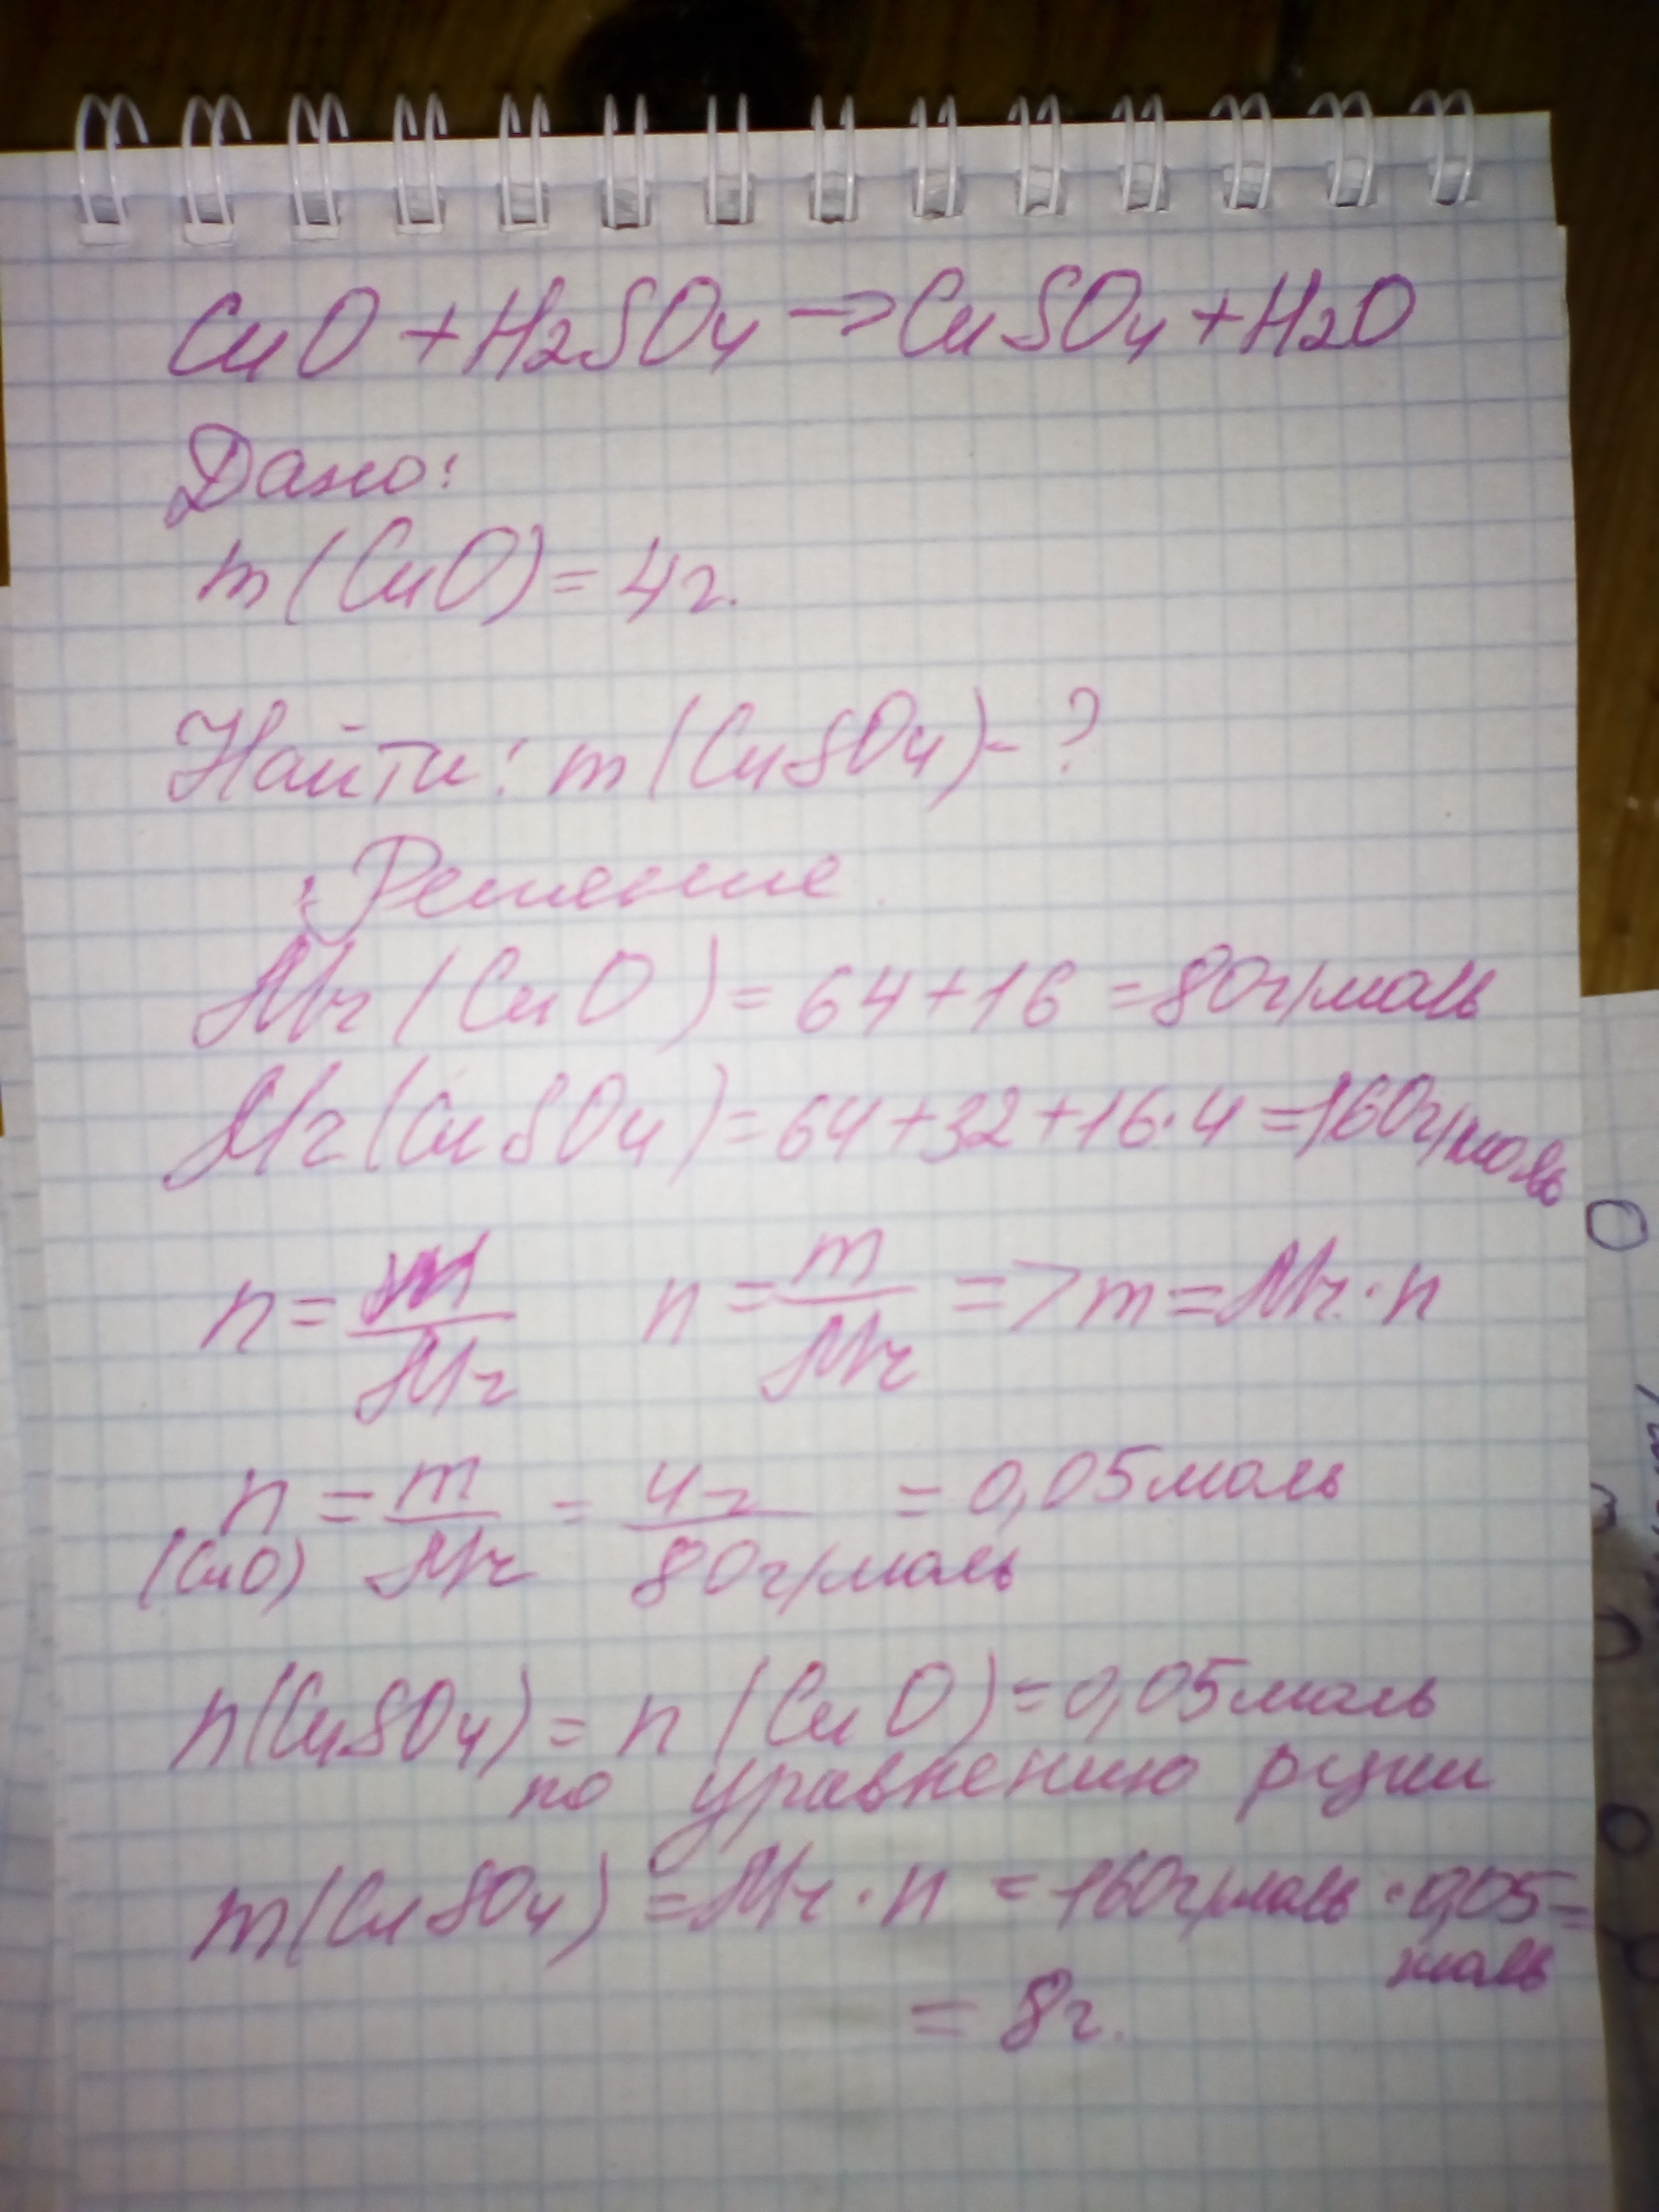 CuO + H2SO4 → CuSO4 + H2O
Дано:
m(CuO) = 4г.
Найти: m(CuSO4) - ?
Решение.
Mr(CuO) = 64 + 16 = 80г/моль
Mr(CuSO4) = 64 + 32 + 16·4 = 160г/моль
n = m/Mr n = m/Mr => m = Mr · n
n(CuO) = m/Mr = 4г/80г/моль = 0,05моль
n(CuSO4) = n(CuO) = 0,05моль
по уравнению рции
m(CuSO4) = Mr · n = 160г/моль · 0,05 моль =
= 8г.